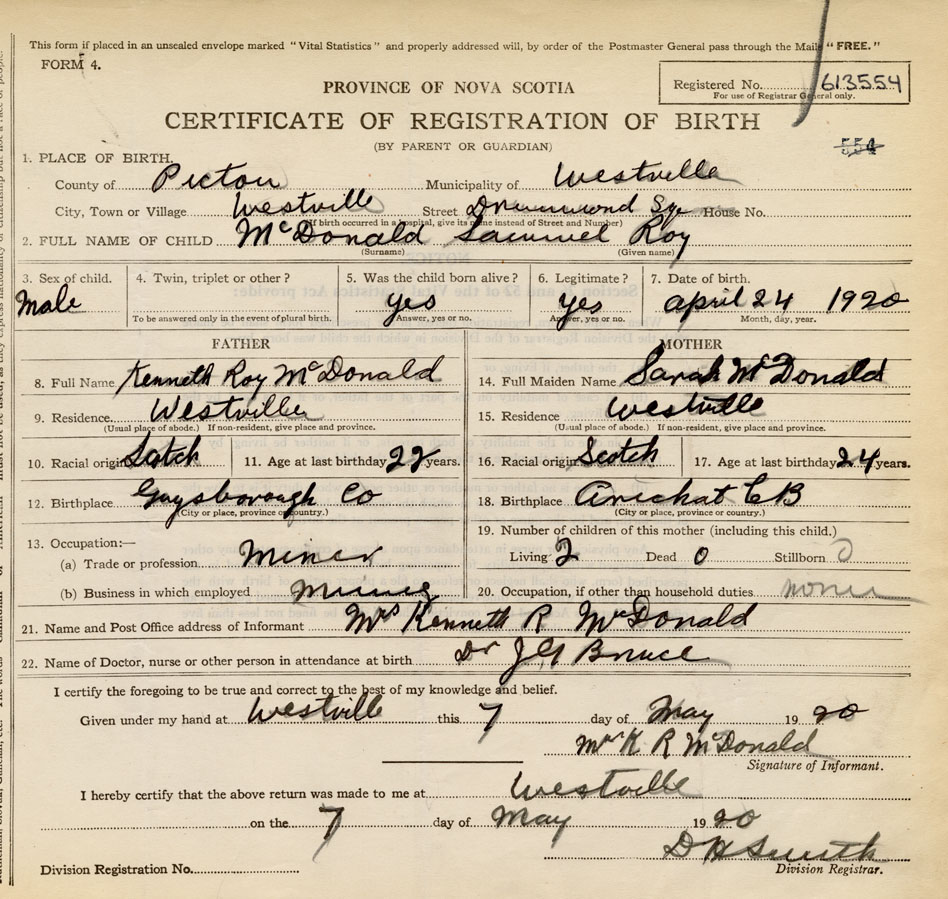 This form if placed in an unsealed envelope marked "Vital Statistics" and properly addressed will, by order of the Postmaster General pass through the Mails "FREE."
FORM 4.
Registered No. 613554
For use of Registrar General only.
PROVINCE OF NOVA SCOTIA
CERTIFICATE OF REGISTRATION OF BIRTH
(BY PARENT OR GUARDIAN)
554
1. PLACE OF BIRTH.
County of Pictou Municipality of Westville
City, Town or Village Westville Street Drummond Sq. House No.
(If birth occurred in a hospital, give its name instead of Street and Number)
2. FULL NAME OF CHILD McDonald Samuel Roy
(Surname) (Given name)
3. Sex of child. 4. Twin, triplet or other? 5. Was the child born alive? 6. Legitimate? 7. Date of birth.
Male yes yes april 24 1920
To be answered only in the event of plural birth. Answer, yes or no. Answer, yes or no. Month, day, year.
FATHER MOTHER
8. Full Name Kenneth Roy McDonald 14. Full Maiden Name Sarah McDonald
9. Residence Westville 15. Residence Westville
(Usual place of abode.) If non-resident, give place and province. (Usual place of abode.) If non-resident, give place and province.
10. Racial origin Scotch 11. Age at last birthday 22 years. 16. Racial origin Scotch 17. Age at last birthday 24 years.
12. Birthplace Guysborough Co 18. Birthplace Arichat C B
(City or place, province or country.) (City or place, province or country.)
19. Number of children of this mother (including this child.)
13. Occupation:—
(a) Trade or profession Miner Living 2 Dead 0 Stillborn 0
(b) Business in which employed Mining 20. Occupation, if other than household duties none
21. Name and Post Office address of Informant Mrs Kenneth R McDonald
22. Name of Doctor, nurse or other person in attendance at birth Dr J G Bruce
I certify the foregoing to be true and correct to the best of my knowledge and belief.
Given under my hand at Westville this 7 day of May 1920
Mrs K R McDonald
Signature of Informant.
I hereby certify that the above return was made to me at Westville
on the 7 day of May 1920
D H Smith
Division Registration No. Division Registrar.